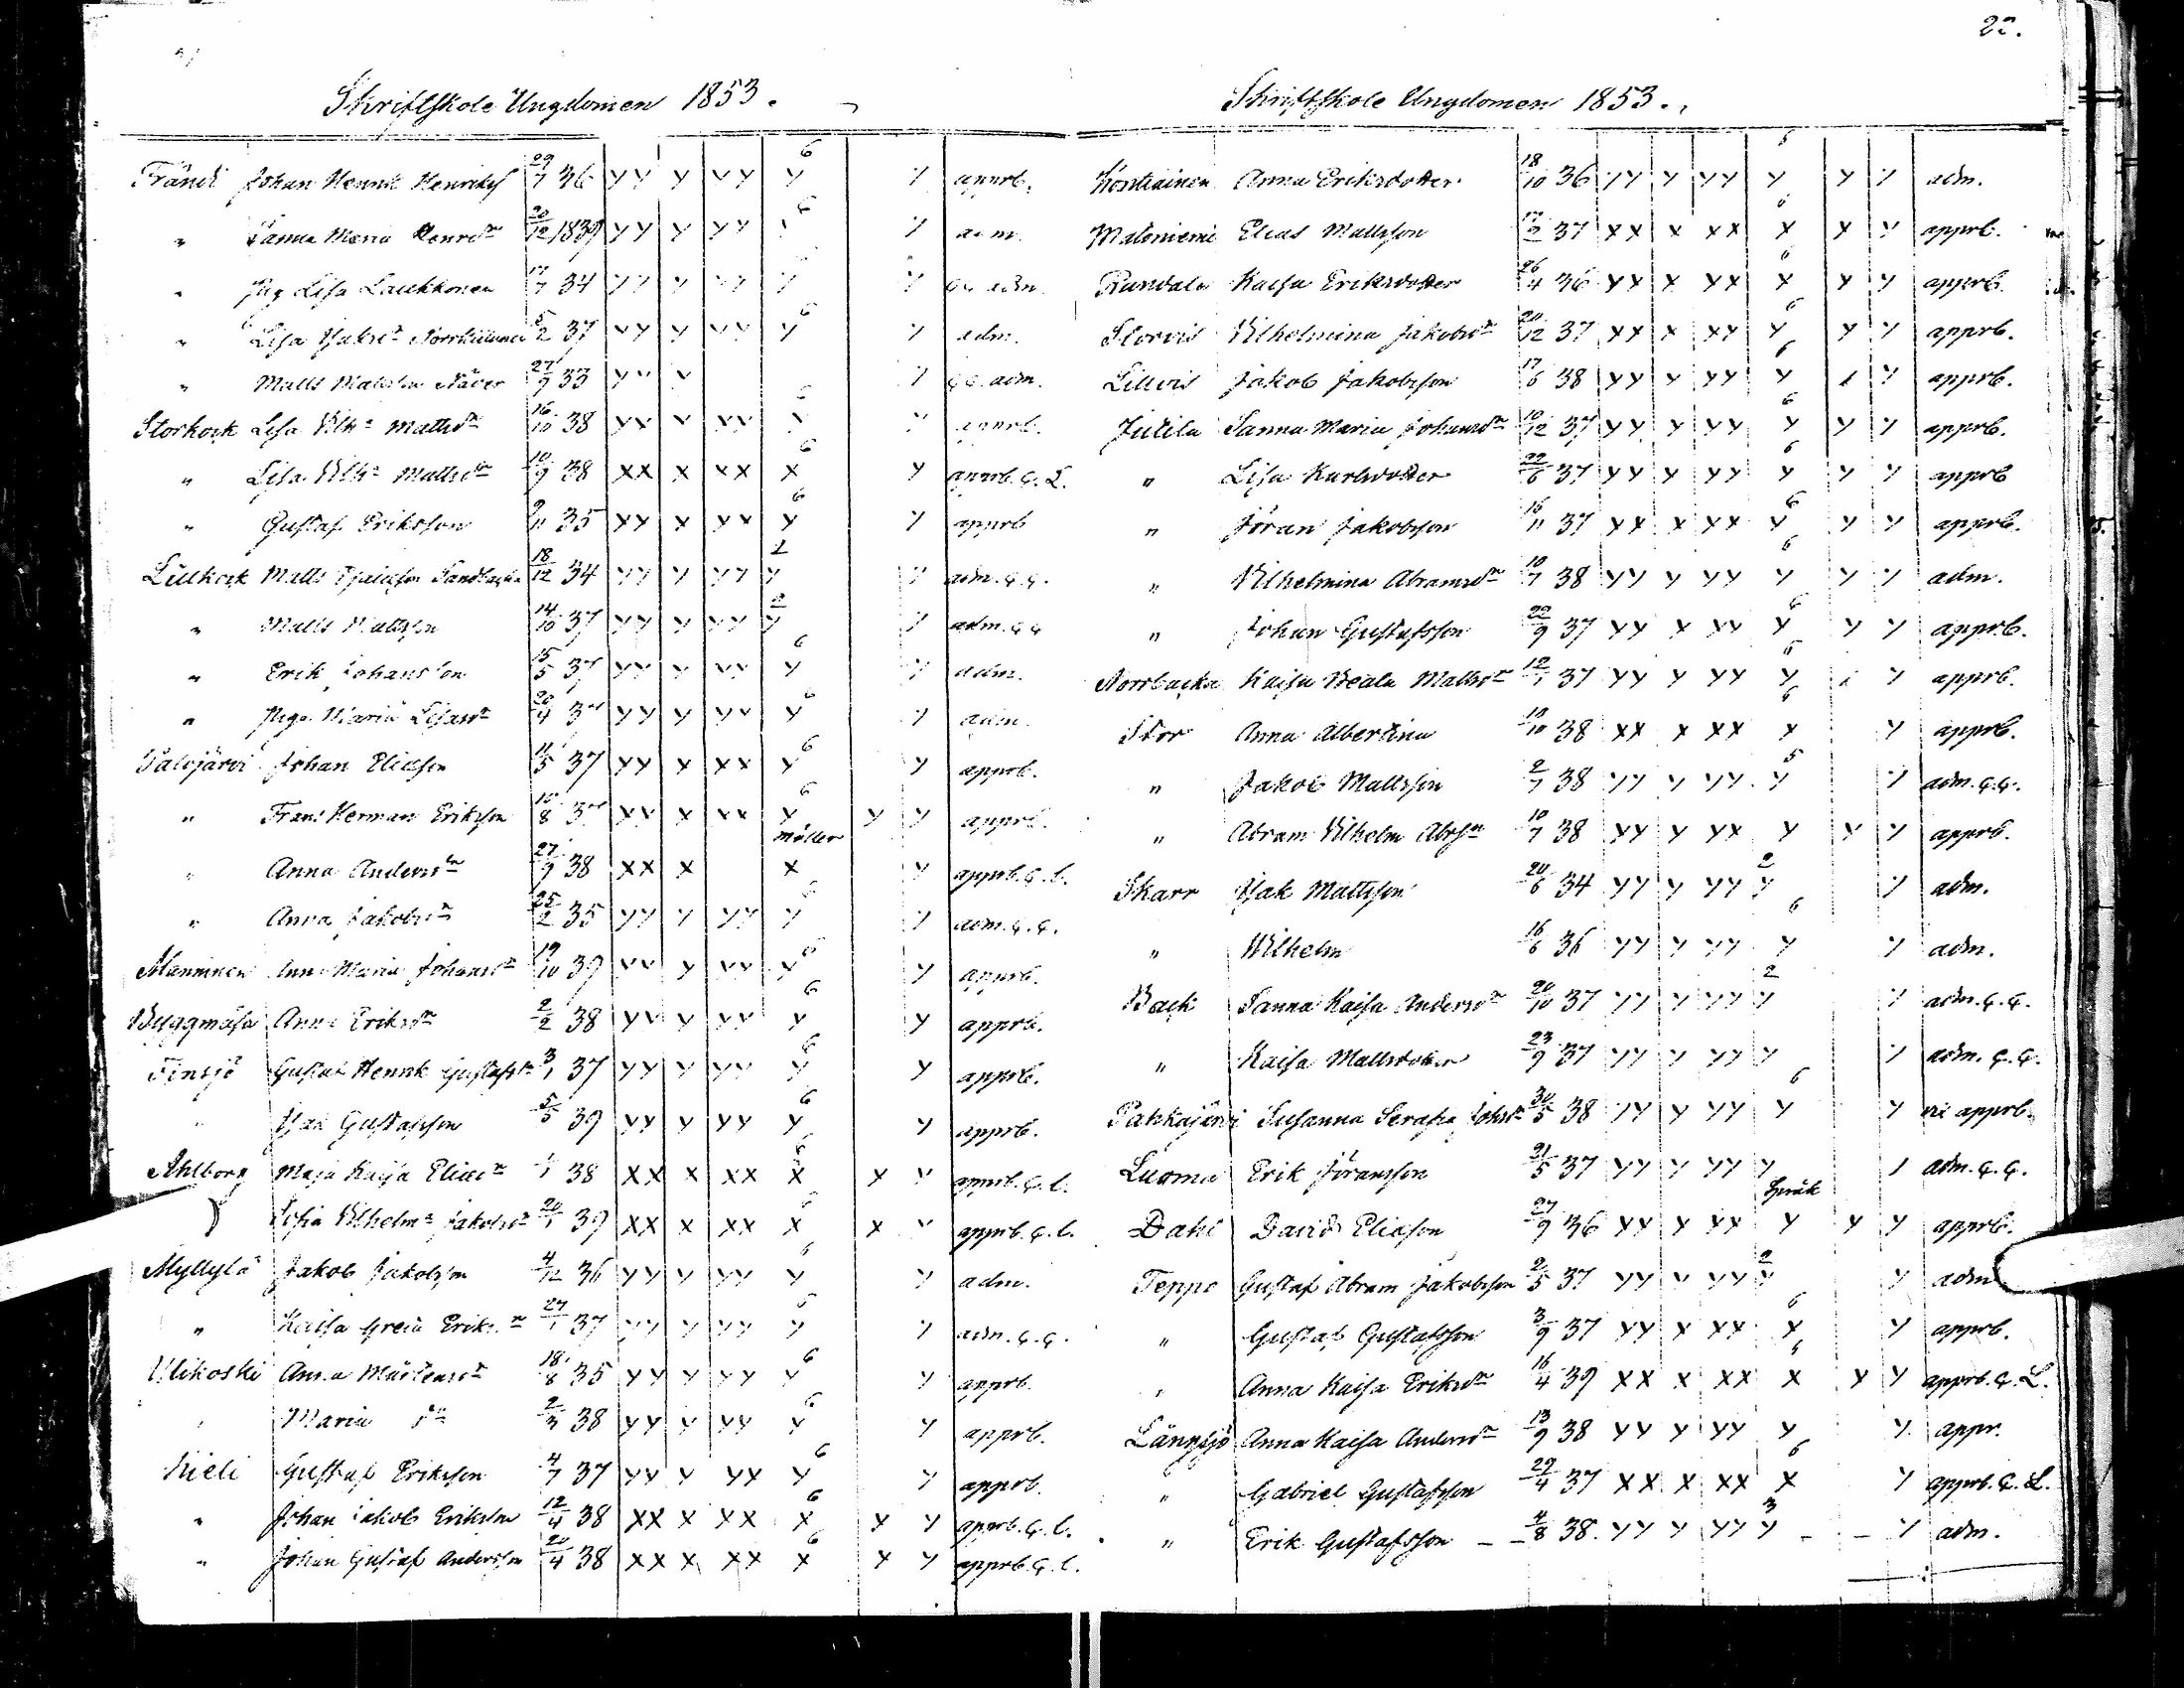 22.
Skriftskole Ungdomen 1853.
Frändi Johan Henrik Henrikss 29/7 36 yy y yy y 6 y apprb.
" Sanna Maria Henrsdr 20/12 1839 yy y yy 6 y adm.
" Pig Lisa Laukkonen 17/7 34 yy y yy y y adm.
" Lisa Isaksdr 5/2 37 yy y yy y 6 y adm.
" Matts Mattsson Näver 27/9 33 y y adm.
Storkock Lisa Vilha Mattsdr 16/10 38 yx y xy y 6 y apprb.
" Lisa Vilha Mattsdr 10/9 38 xx x xx x 6 y apprb. G. L.
" Gustaf Eriksson 9/11 35 xy x yx y 6 y apprb
Lillkock Matts Sandbacka 18/12 34 yy y yy y 2 y adm. G. G.
" Matts Mattsson 14/10 37 yy y yy y 2 y adm. G G
" Erik Johansson 15/5 37 yy y yy y 6 y adm.
" Piga Maria Lisasdr 20/4 37 yy y yy y 6 y adm.
Salojärvi Johan Eliasson 11/5 37 yy x xx y 6 y apprb.
" Frans Herman Eriksson 15/8 37 xy x xx y 6 y y apprb.
" Anna Andersdr 27/9 38 xx x möller x y apprb. G. L.
" Anna Jakobsdr 25/2 35 yy y yy y 6 y adm. G. G.
Manninen Anna Maria Johansdr 19/10 39 yy y yy y 6 y apprb.
Byggmäsa Anna Eriksdr 2/2 38 yy y yy y 6 y apprb.
Finsjö Gustaf Henrik Gustafss 3/1 37 yy y yy y 6 y apprb.
" Isak Gustafsson 5/5 39 yy y yy y 6 y apprb.
Ahlborg Maja Kajsa Eliasdr 38 xx x xx x 6 x y apprb. G. L.
Sofia Vilhelma Jakobsdr 20/1 39 xx x xx x 6 x y apprb. G. L.
Myllylä Jakob Jakobsson 4/12 36 yy y yy y 6 y adm.
" Kaisa Greta Eriksdr 27/1 37 yy y yy y 6 y adm. G. G.
Ulikoski Anna Mårtensdr 18/8 35 yy y yy y 6 y apprb.
" Maria dr 2/3 38 yy y yy y 6 y apprb.
Kieli Gustaf Eriksson 4/7 37 yy y yx y 6 y apprb.
" Johan Jakob Eriksson 12/4 38 xx x xx x 6 x y apprb. G. L.
" Johan Gustaf Andersson 20/4 38 xx x xx x 6 x y apprb. G. L.
Skriftskole Ungdomen 1853.
Kontiainen Anna Eriksdotter 18/10 36 yy y yy y 5 y y adm.
Matoniemi Elias Mattsson 17/2 37 xx x xx x 6 x y apprb.
Rundala Kaisa Eriksdotter 26/4 36 yx x xy x 6 x y apprb.
Storvis Vilhelmina Jakobsdr 20/12 37 xx x xy y 6 y y apprb.
Lillvis Jakob Jakobsson 17/6 38 yy y yy y 6 x y apprb.
Jutila Sanna Maria Johansdr 10/12 37 yy y yy y 6 y y apprb.
" Lisa Karlsdotter 22/6 37 yy y yy y 6 y y apprb
" Jöran Jakobsson 16/11 37 xx x xx y 6 y y apprb.
" Vilhelmina Abramsdr 10/7 38 yy y yy y 6 y y adm.
" Johan Gustafsson 22/9 37 yy x yy y 6 y y apprb.
Norrbacka Kaisa Beata Mattsdr 12/1 37 yy y yy y 5 x y apprb.
Stor Anna Albertina 10/10 38 xx x xx x 6 y apprb.
" Jakob Mattsson 2/7 38 yy y yy y 5 y adm. G. G.
" Abram Vilhelm Abrsn 10/7 38 yy y yx y y y apprb.
Skarr Isak Mattsson 20/6 34 yy y yy y 2 y adm.
" Wilhelm 16/6 36 yy y yy y 6 y adm.
Back Sanna Kaisa Andersdr 20/10 37 yy y yy y 2 y adm. G. G.
" Kaisa Mattsdotter 23/9 37 yy y yy y y adm. G. G.
Pakkajärvi Susanna Serafia Johsdr 30/5 38 yy y yy y 6 y apprb.
Luoma Erik Jöransson 21/5 37 yy y yy y y adm. G. G.
Dahl David Eliasson 27/9 36 xy x xx Språk y y y apprb.
Teppo Gustaf Abram Jakobsson 2/5 37 yy y yy y 2 y adm
" Gustaf Gustafsson 3/9 37 yy x xx x 6 y apprb.
" Anna Kaisa Eriksdr 16/4 39 xx x xx x 6 x y apprb. G. L.
Långsjö Anna Kaisa Andersdr 13/9 38 yy y yy y y appr.
" Gabriel Gustafsson 29/4 37 xx x xx x 6 y apprb. G. L.
" Erik Gustafsson 4/8 38. yy y yy y 3 y adm.